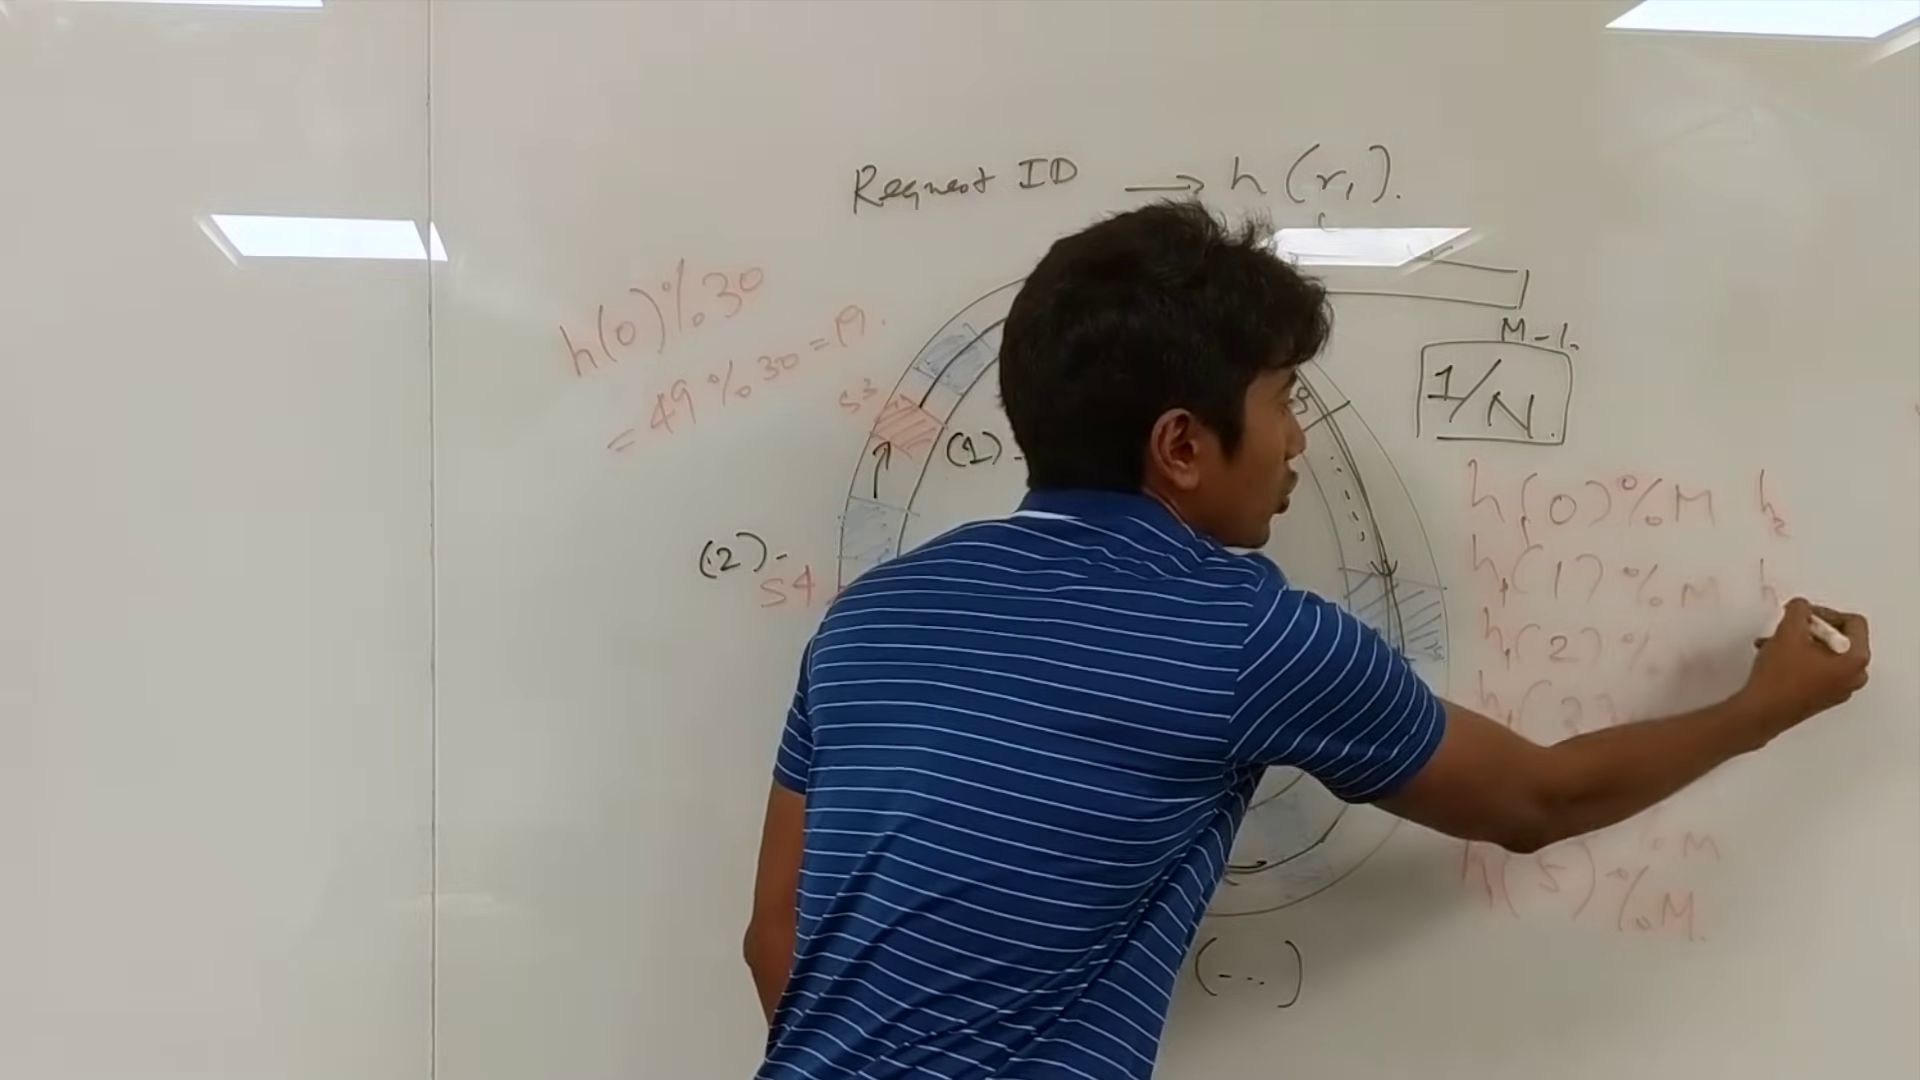 Request ID → h(r₁).
h(0)%30
= 49%30 = 19.
M-1.
1/N.
S3
(1)-
(2)-
S4
h₁(0)%M h₂
h₁(1)%M h
h₁(2)%
h₁(3)
%M
h(5)%M.
(...)